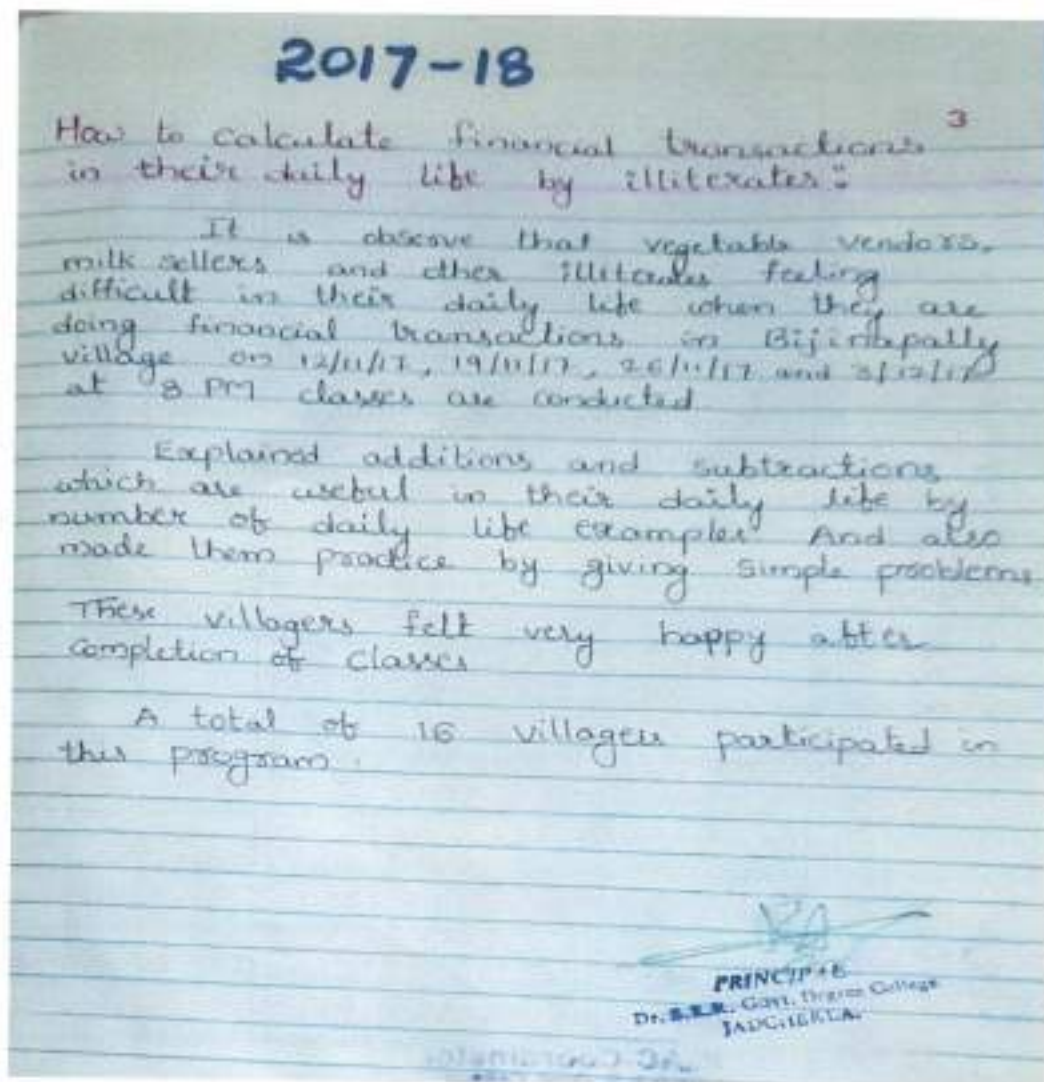 2017-18
3
How to calculate financial transactions
in their daily life by illiterates :
It is observe that vegetable vendors,
milk sellers and other illiterates feeling
difficult in their daily life when they are
doing financial transactions in Bijinapally
village on 12/11/17, 19/11/17, 26/11/17 and 3/12/17
at 8 PM classes are conducted
Explained additions and subtractions
which are useful in their daily life by
number of daily life examples. And also
made them practice by giving simple problems
These villagers felt very happy after
completion of classes
A total of 16 villagers participated in
this program.
PRINCIPAL
Dr. B.R.R. Govt. Degree College
JADCHERLA.